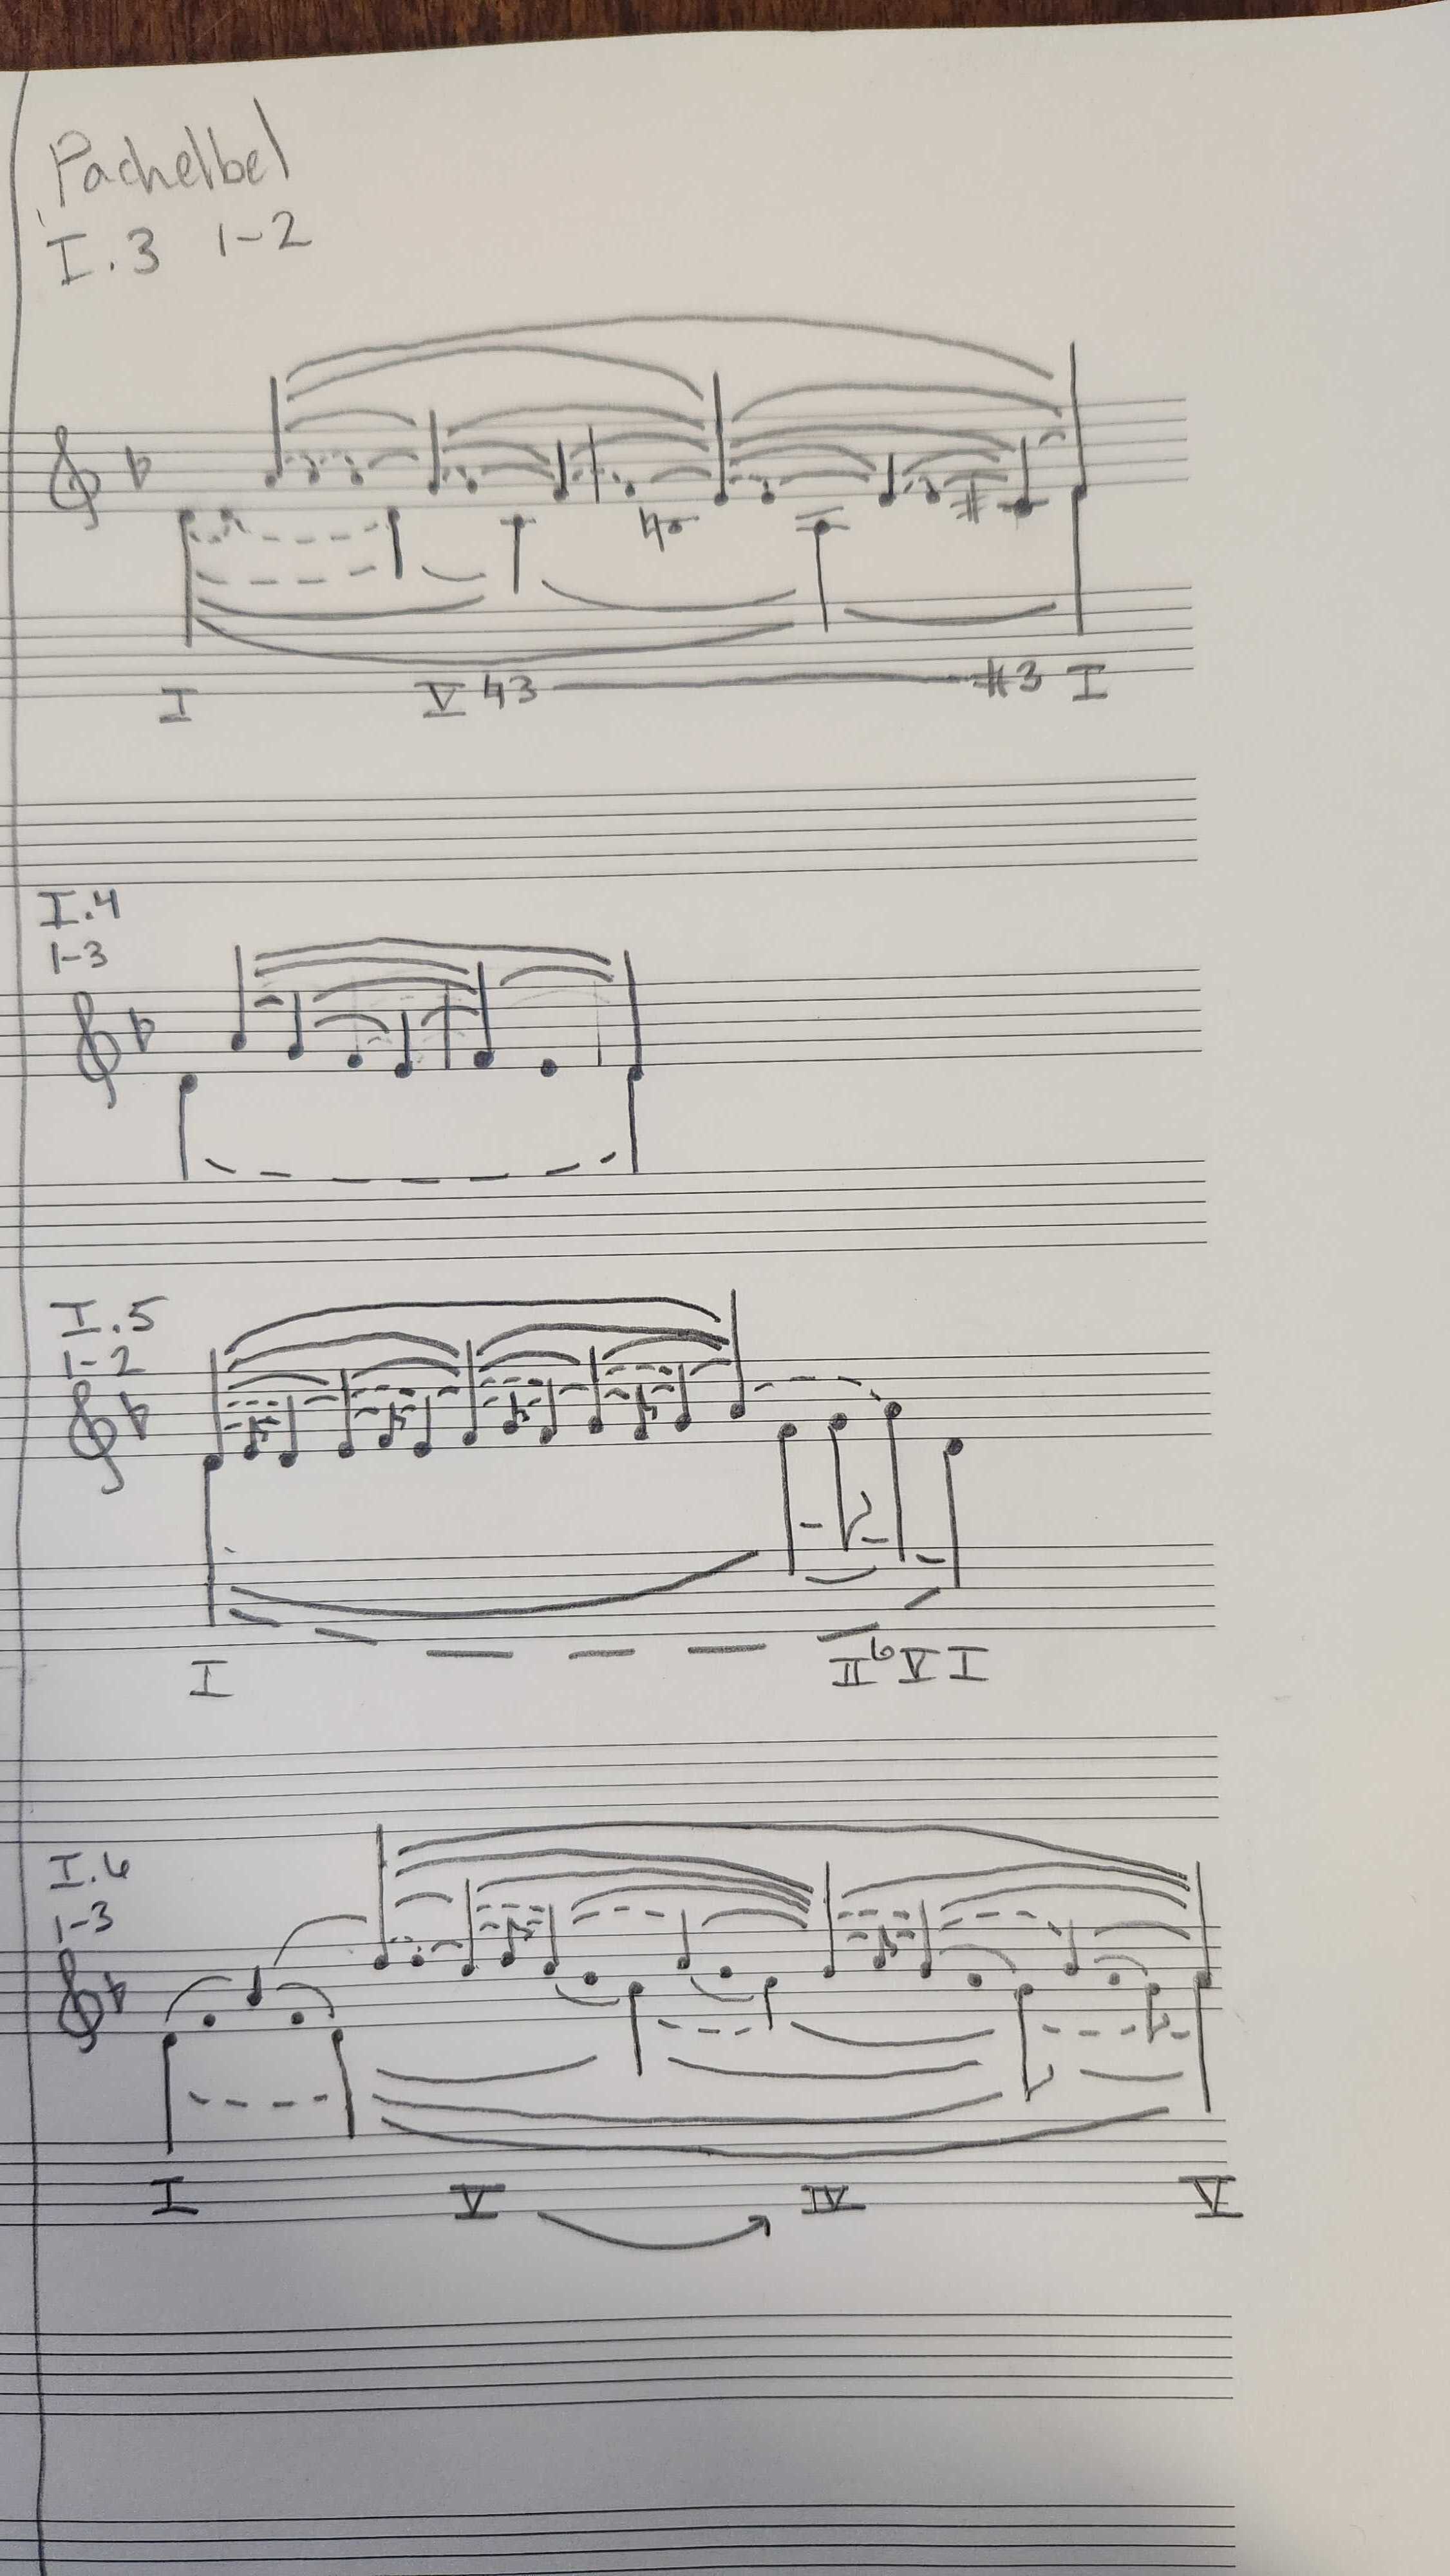 Pachelbel
I.3 1-2
I V 43 #3 I
I.4
1-3
I.5
1-2
I II6 V I
I.6
1-3
I V IV V